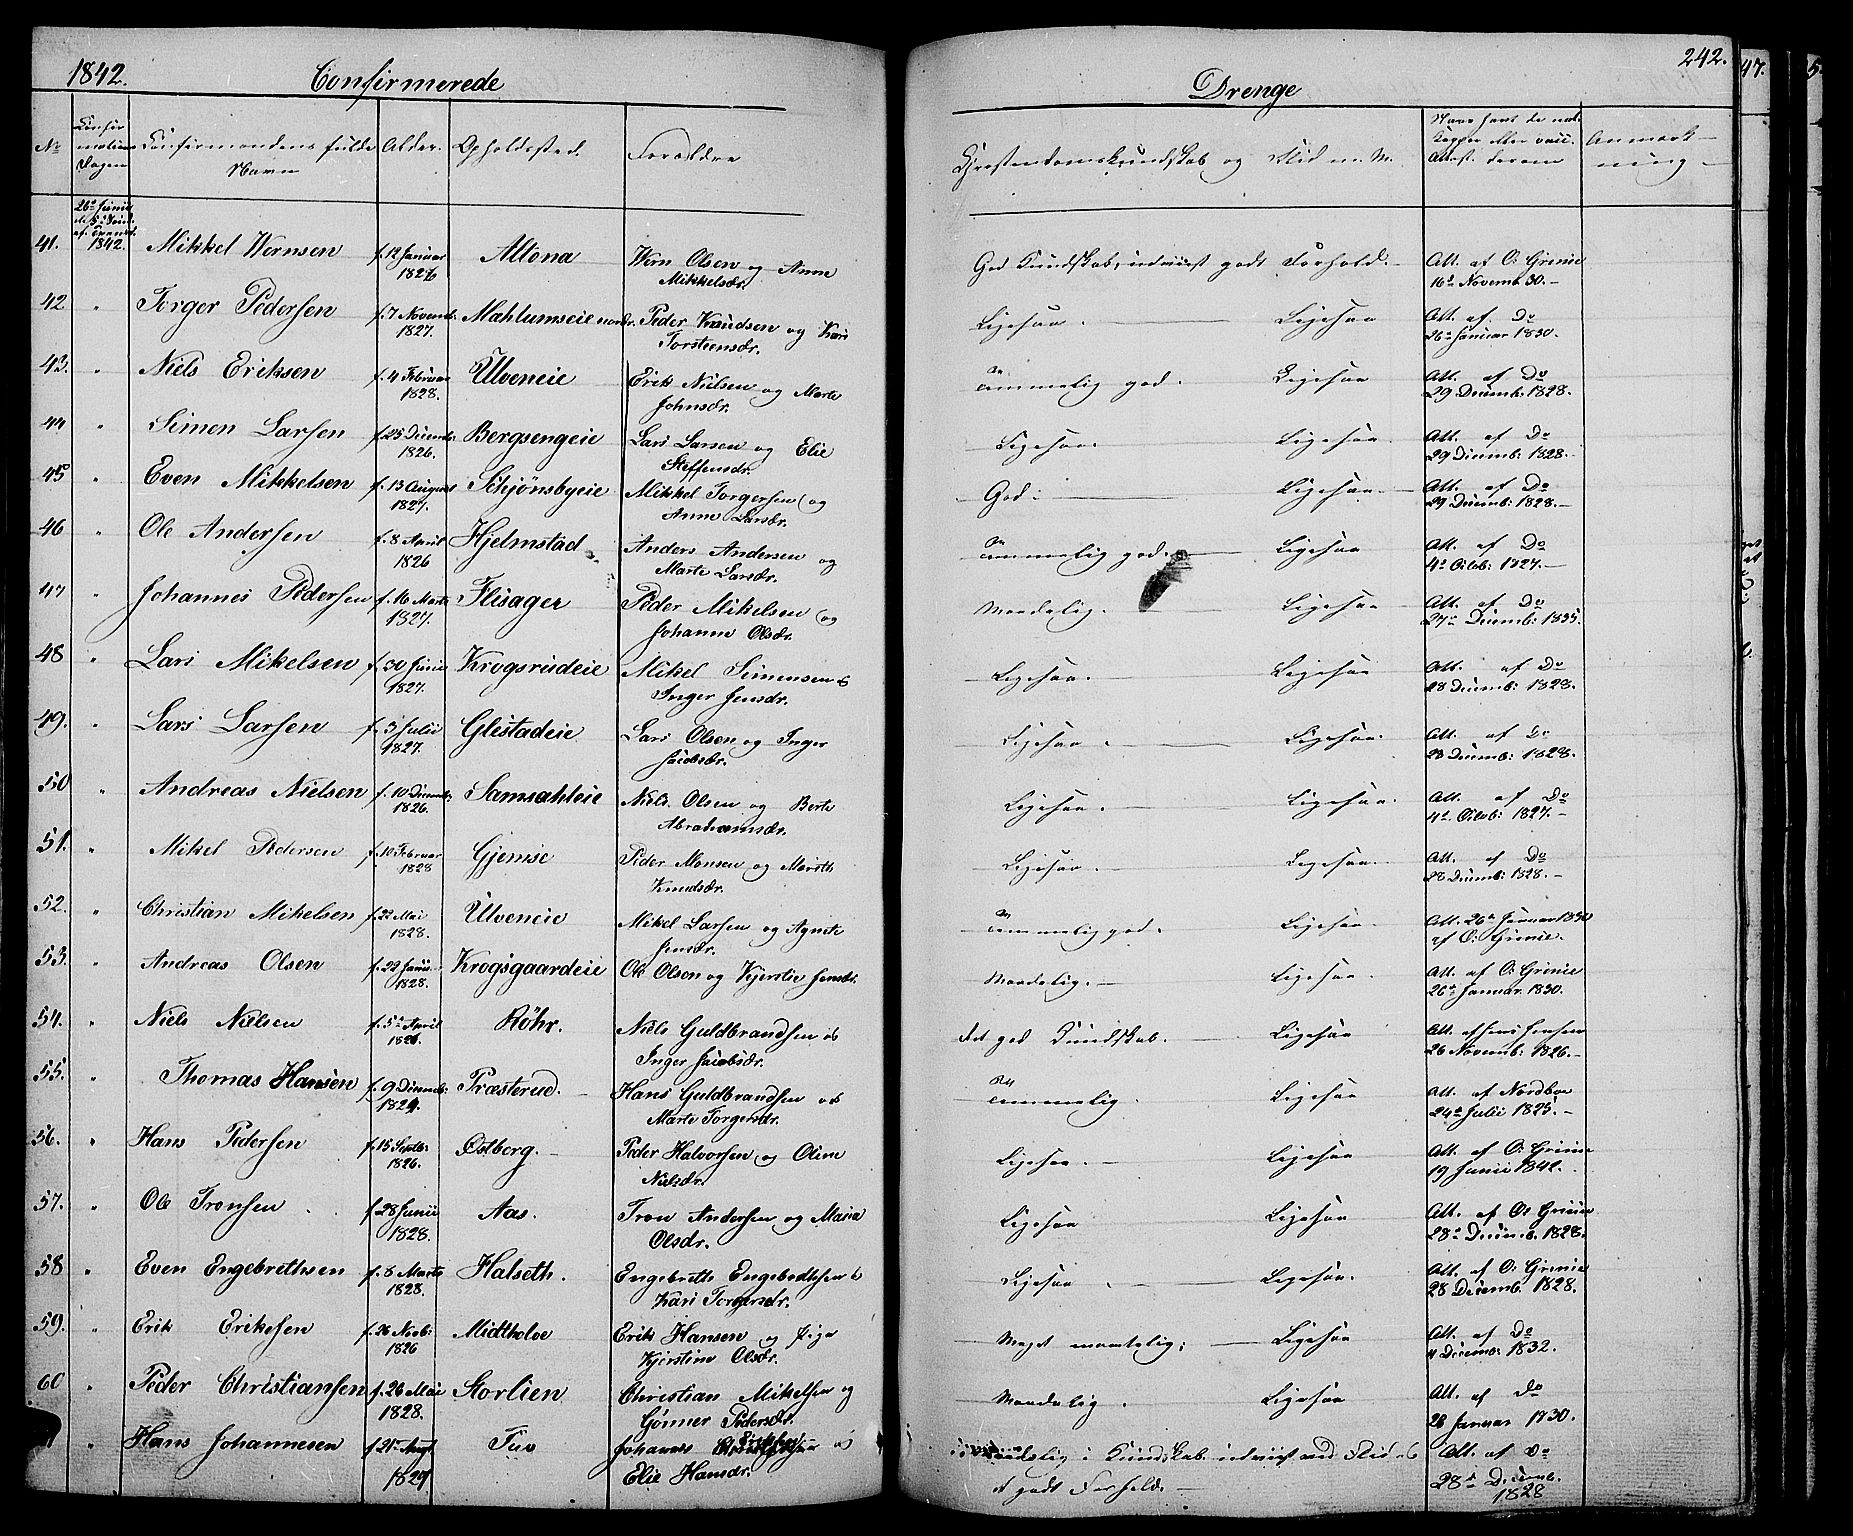 1842. Confirmerede
Drenge 242.
No Confirmations Dagen Confirmandens fulde Navn Alder. Opholdssted. Forældre
Christendomskundskab og Flid m. M. Anmærkning
26de Junii 1842.
41. Mikkel Wernsen f. 12 Januar 1826 Altona Wern Olsen og Anne Mikkelsdr. God Kundskab, udviist godt Forhold. Att. af O: Grenie 16de Novemb. 30.
42. " Torger Pedersen f. 7 Novemb: 1827. Mahlumseie nordr. Peder Knudsen og Kari Torstensdr. Ligesaa. Ligesaa Att. af Do 26de Januar 1830.
43. " Niels Eriksen f. 4 Februar 1828. Ulveneie Erik Nielsen og Marte Johnsdr. Temmelig god. Ligesaa Att. af Do 29 Decemb: 1828.
44 " Simen Larsen f. 25 Decemb: 1826. Bergsengeie Lars Larsen og Elie Steffensdr. Ligesaa. Ligesaa. Att. af Do 29 Decemb: 1828.
45 " Even Mikkelsen f. 13 August 1827. Schjønsbyeie Mikkel Torgersen og Anne Larsdr. God. Ligesaa. Att. af Do 29 Decemb: 1828.
46 " Ole Andersen f. 8 April 1826 Hjelmstad Anders Andersen og Marte Larsdr. Temmelig god. Ligesaa Att. af Do 4de Octob: 1827.
47 " Johannes Pedersen f. 16 Marts 1827. Flisager Peder Mikelsen og Johanne Olsdr. Maadelig. Ligesaa Att. af Do 27de Decemb: 1835.
48 " Lars Mikelsen f. 30 Junie 1827. Krogsrudeie Mikel Simensen & Inger Jensdr. Ligesaa. Ligesaa Att. af Do 28 Decemb: 1828.
49. " Lars Larsen f. 3 Julii 1827. Glestadeie Lars Olsen og Inger Jacobsdr. Ligesaa. Ligesaa. Att. af Do 28 Decemb: 1828.
50 " Andreas Nielsen f. 10 Decemb: 1826. Samsahleie Niels Olsen og Berte Abrahamsdr. Ligesaa. Ligesaa. Att. af Do 4de Octob: 1827.
51. " Mikel Pedersen f. 10 Februar 1828 Gjemse Peder Monsen og Marith Knudsdr. Ligesaa. Ligesaa. Att. af Do 28 Decemb: 1828.
52. " Christian Mikelsen f. 22 Mai 1828. Ulveneie Mikel Larsen og Agnete Jensdr. Temmelig god. Ligesaa. Att. 26de Januar 1830 af O: Grenie.
53. " Andreas Olsen f. 29 Junii 1828. Krogsgaardeie Ole Olsen og Kjerstie Jensdr. Maadelig. Ligesaa Att. af O: Grenie 26de Januar 1830.
54. " Niels Nielsen f. 5te April 1826. Röhr. Niels Guldbrandsen & Inger Jacobsdr. god Kundskab. Ligesaa. Att. af Jens Jensen 26 Novemb: 1826.
55. " Thomas Hansen f. 9 Decemb: 1824. Præsterud. Hans Guldbrandsen og Marte Torgersdr. Temmelig. Ligesaa Att. af Nordboe 24de Julii 1825.
56. " Hans Pedersen f. 15 Septb: 1826. Østberg. Peder Halvorsen og Oline Nielsdr. Ligesaa. Ligesaa Att. af O: Grenie 19 Junii 1842.
57. " Ole Tronsen f. 28 Junii 1828. Aas. Tron Andersen og Maria Olsdr. Ligesaa Ligesaa Att. af O: Grenie 28de Decemb. 1828.
58 " Even Engebrethsen f. 8 Marts 1828. Halseth. Engebreth Engebrethsen & Kari Torgersdr. Ligesaa. Ligesaa. Att. af O: Grenie 28 Decemb. 1828.
59. " Erik Eriksen f. 26 Novb: 1826 Midtholoe Erik Hansen og Pige Kjerstine Olsdr. Meget maadelig. Ligesaa Att. af Do 11 Decemb: 1832.
60 " Peder Christiansen f. 26 Mai 1828. Storlien Christian Mikelsen og Gönner Pedersdr. Maadelig. Ligesaa Att. af Do 26 Januar 1830.
" Hans Johannesen f. 21de Augt 1827 Tuv Johannes & Elie Hansdr. Kundskab udviist Flid & et godt Forhold. Att. af Do 28de Decemb. 1828